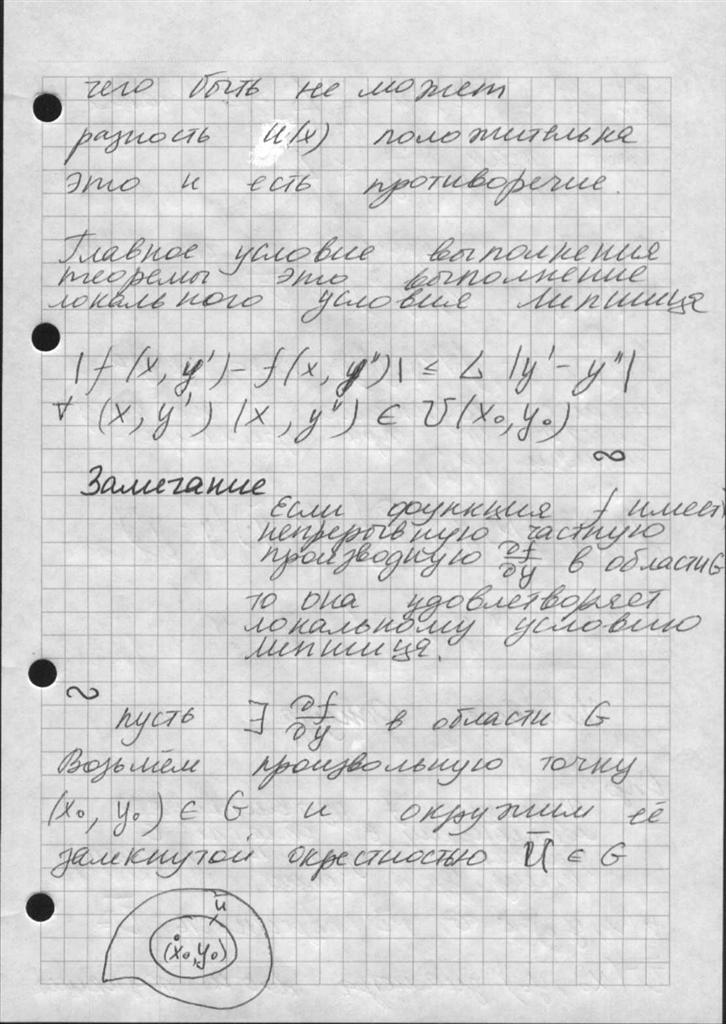 чего быть не может
разность u(x) положительна
это и есть противоречие.
Главное условие выполнения
теоремы это выполнение
локального условия Липшица
|f(x, y') - f(x, y")| ≤ L |y' - y"|
∀ (x, y') (x, y") ∈ U(x₀, y₀)
~
Замечание
Если функция f имеет
непрерывную частную
производную ∂f/∂y в области G
то она удовлетворяет
локальному условию
Липшица.
~
пусть ∃ ∂f/∂y в области G
Возьмём произвольную точку
(x₀, y₀) ∈ G и окружим её
замкнутой окрестностью Ū ∈ G
ū
(x₀, y₀)